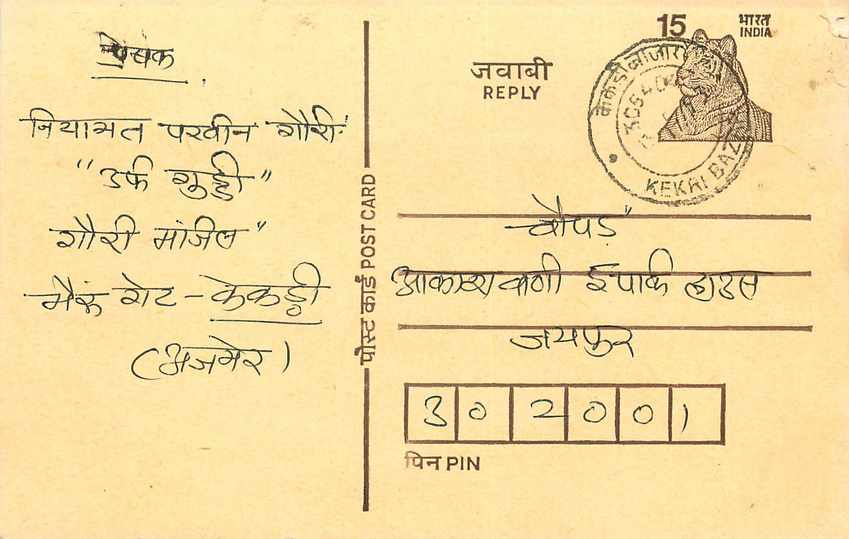 प्रेषक
नियामत परवीन गौरी
"उर्फ गुड्डी"
गौरी मंजिल"
भैरु गेट - केकड़ी
(अजमेर)
पोस्ट कार्ड POST CARD
जवाबी
REPLY
15
भारत
INDIA
केकड़ी बाजार
305404
KEKRI BAZ
चौपड़
आकाशवाणी ई पार्क हाउस
जयपुर
302001
पिन PIN